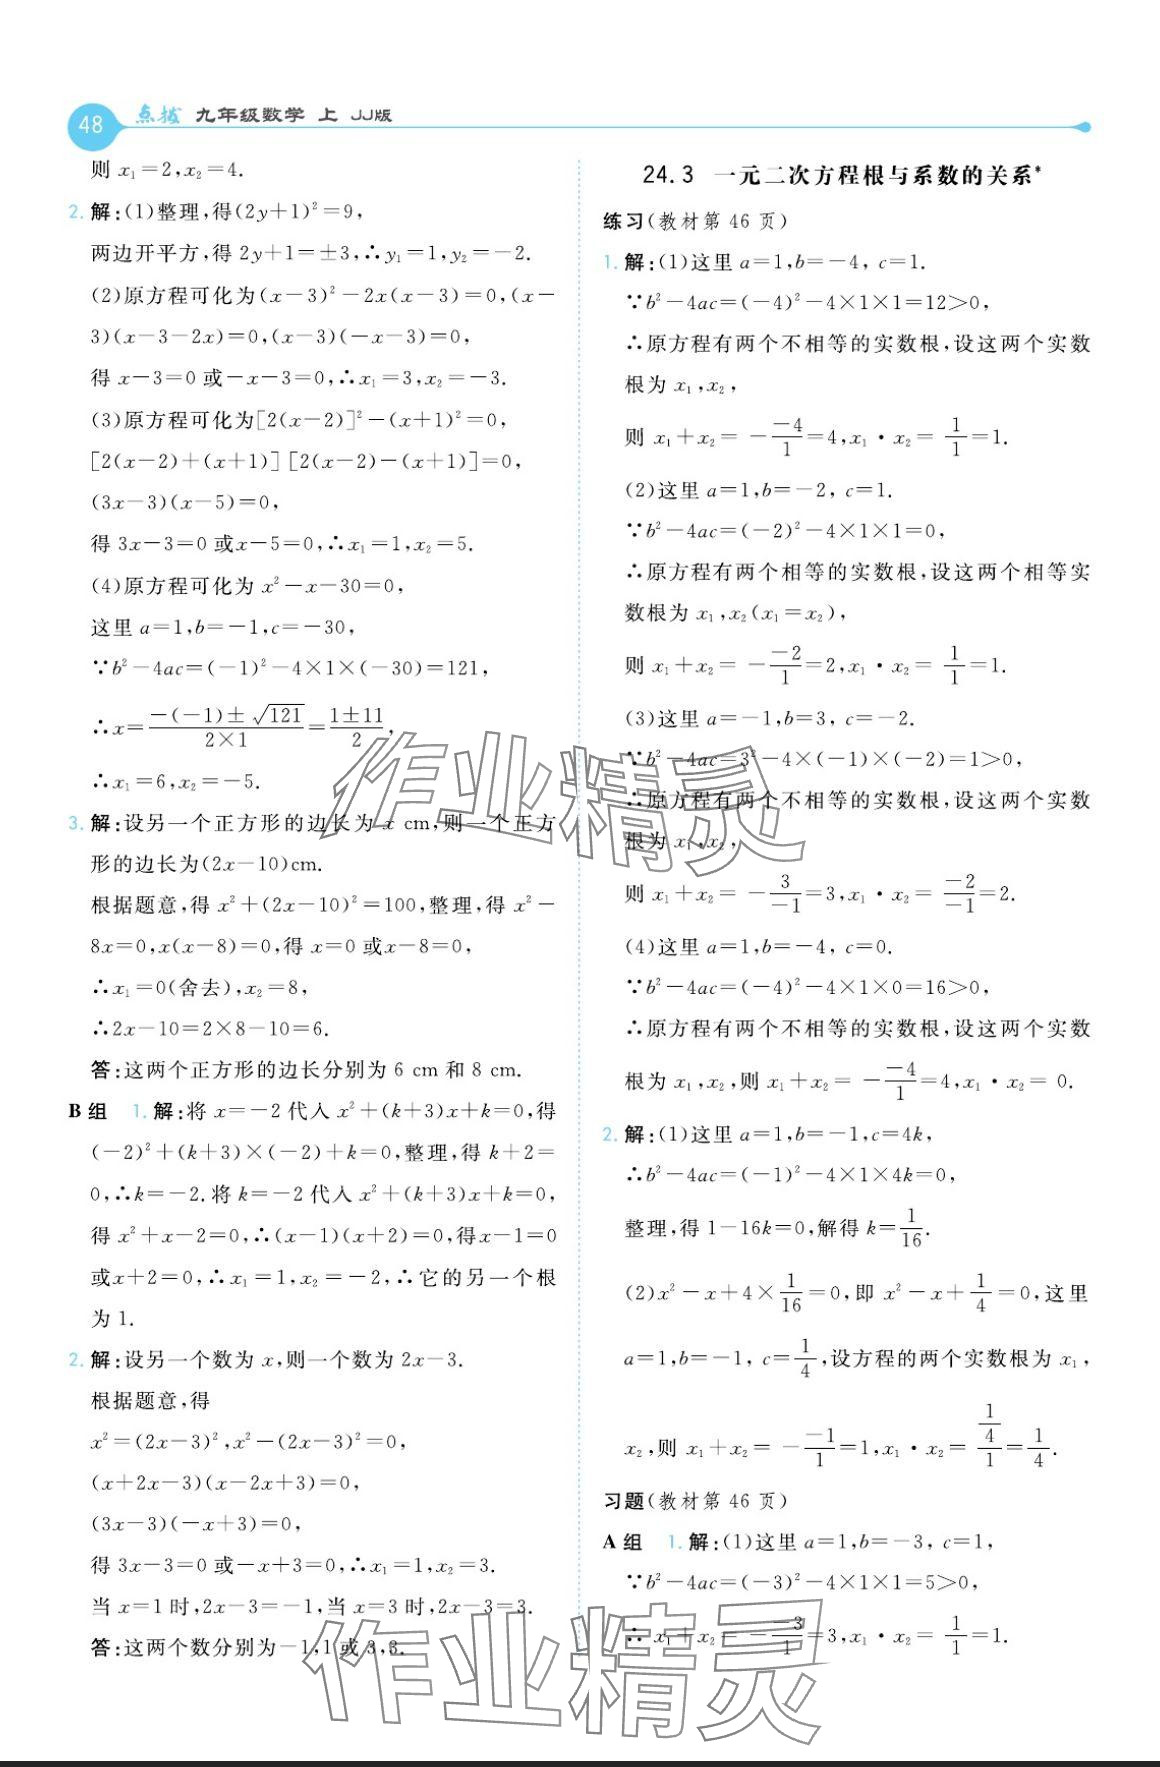 48 点拨 九年级数学 上 JJ版
则 x₁=2,x₂=4.
2. 解:(1)整理,得(2y+1)²=9,
两边开平方,得 2y+1=±3,∴y₁=1,y₂=-2.
(2)原方程可化为(x-3)²-2x(x-3)=0,(x-
3)(x-3-2x)=0,(x-3)(-x-3)=0,
得 x-3=0 或-x-3=0,∴x₁=3,x₂=-3.
(3)原方程可化为[2(x-2)]²-(x+1)²=0,
[2(x-2)+(x+1)][2(x-2)-(x+1)]=0,
(3x-3)(x-5)=0,
得 3x-3=0 或x-5=0,∴x₁=1,x₂=5.
(4)原方程可化为 x²-x-30=0,
这里 a=1,b=-1,c=-30,
∵b²-4ac=(-1)²-4×1×(-30)=121,
∴x=\frac{-(-1)±\sqrt{121}}{2×1}=\frac{1±11}{2},
∴x₁=6,x₂=-5.
3. 解:设另一个正方形的边长为 x cm,则一个正方
形的边长为(2x-10)cm.
根据题意,得 x²+(2x-10)²=100,整理,得 x²-
8x=0,x(x-8)=0,得 x=0 或x-8=0,
∴x₁=0(舍去),x₂=8,
∴2x-10=2×8-10=6.
答:这两个正方形的边长分别为 6 cm 和 8 cm.
B 组 1. 解:将 x=-2 代入 x²+(k+3)x+k=0,得
(-2)²+(k+3)×(-2)+k=0,整理,得 k+2=
0,∴k=-2.将 k=-2 代入 x²+(k+3)x+k=0,
得 x²+x-2=0,∴(x-1)(x+2)=0,得x-1=0
或x+2=0,∴x₁=1,x₂=-2,∴它的另一个根
为 1.
2. 解:设另一个数为 x,则一个数为 2x-3.
根据题意,得
x²=(2x-3)²,x²-(2x-3)²=0,
(x+2x-3)(x-2x+3)=0,
(3x-3)(-x+3)=0,
得 3x-3=0 或-x+3=0,∴x₁=1,x₂=3.
当 x=1 时,2x-3=-1,当 x=3 时,2x-3=3.
答:这两个数分别为-1,1 或 3,3.
24.3 一元二次方程根与系数的关系*
练习(教材第 46 页)
1. 解:(1)这里 a=1,b=-4, c=1.
∵b²-4ac=(-4)²-4×1×1=12>0,
∴原方程有两个不相等的实数根,设这两个实数
根为 x₁,x₂,
则 x₁+x₂= -\frac{-4}{1}=4,x₁·x₂= \frac{1}{1}=1.
(2)这里 a=1,b=-2, c=1.
∵b²-4ac=(-2)²-4×1×1=0,
∴原方程有两个相等的实数根,设这两个相等实
数根为 x₁,x₂(x₁=x₂),
则 x₁+x₂= -\frac{-2}{1}=2,x₁·x₂= \frac{1}{1}=1.
(3)这里 a=-1,b=3, c=-2.
∵b²-4ac=3²-4×(-1)×(-2)=1>0,
∴原方程有两个不相等的实数根,设这两个实数
根为 x₁,x₂,
则 x₁+x₂= -\frac{3}{-1}=3,x₁·x₂= \frac{-2}{-1}=2.
(4)这里 a=1,b=-4, c=0.
∵b²-4ac=(-4)²-4×1×0=16>0,
∴原方程有两个不相等的实数根,设这两个实数
根为 x₁,x₂,则 x₁+x₂= -\frac{-4}{1}=4,x₁·x₂= 0.
2. 解:(1)这里 a=1,b=-1,c=4k,
∴b²-4ac=(-1)²-4×1×4k=0,
整理,得 1-16k=0,解得 k=\frac{1}{16}.
(2)x²-x+4×\frac{1}{16}=0,即 x²-x+\frac{1}{4}=0,这里
a=1,b=-1, c=\frac{1}{4},设方程的两个实数根为 x₁,
x₂,则 x₁+x₂= -\frac{-1}{1}=1,x₁·x₂= \frac{\frac{1}{4}}{1}=\frac{1}{4}.
习题(教材第 46 页)
A 组 1. 解:(1)这里 a=1,b=-3, c=1,
∵b²-4ac=(-3)²-4×1×1=5>0,
∴x₁+x₂= -\frac{-3}{1}=3,x₁·x₂= \frac{1}{1}=1.
作业精灵
作业精灵